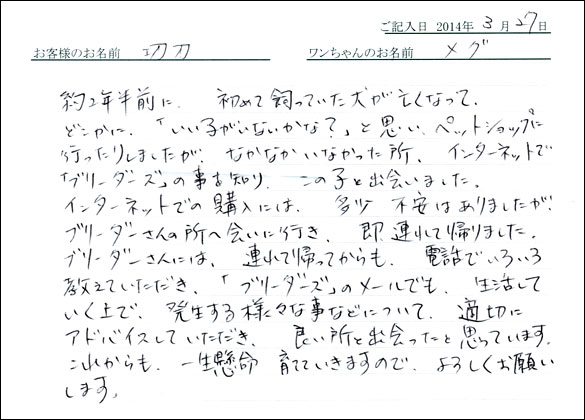 ご記入日 2014年 3月 27日
お客様のお名前 ワンちゃんのお名前 メグ
約2年半前に、初めて飼っていた犬が亡くなって、
どこかに、「いい子がいないかな?」と思い、ペットショップに
行ったりしましたが、なかなかいなかった所、インターネットで
「ブリーダーズ」の事を知り、この子と出会いました。
インターネットでの購入には、多少 不安はありましたが、
ブリーダーさんの所へ会いに行き、即、連れて帰りました。
ブリーダーさんには、連れて帰ってからも、電話でいろいろ
教えていただき、「ブリーダーズ」のメールでも、生活して
いく上で、発生する様々な事などについて、適切に
アドバイスしていただき、良い所と出会ったと思っています。
これからも、一生懸命 育てていきますので、よろしくお願い
します。